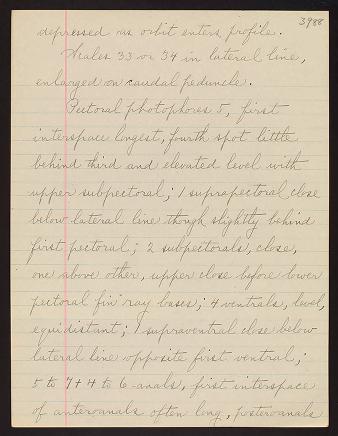 3988
depressed as orbit enters profile.
Scales 33 or 34 in lateral line,
enlarged on caudal peduncle.
Pectoral photophores 5, first
interspace longest, fourth spot little
behind third and elevated level with
upper subpectoral; 1 suprapectoral close
below lateral line though slightly behind
first pectoral; 2 subpectorals, close,
one above other, upper close before lower
pectoral fin ray bases; 4 ventrals, level,
equidistant; 1 supraventral close below
lateral line opposite first ventral;
5 to 7 + 4 to 6 anals, first interspace
of anteroanals often long, posteroanals